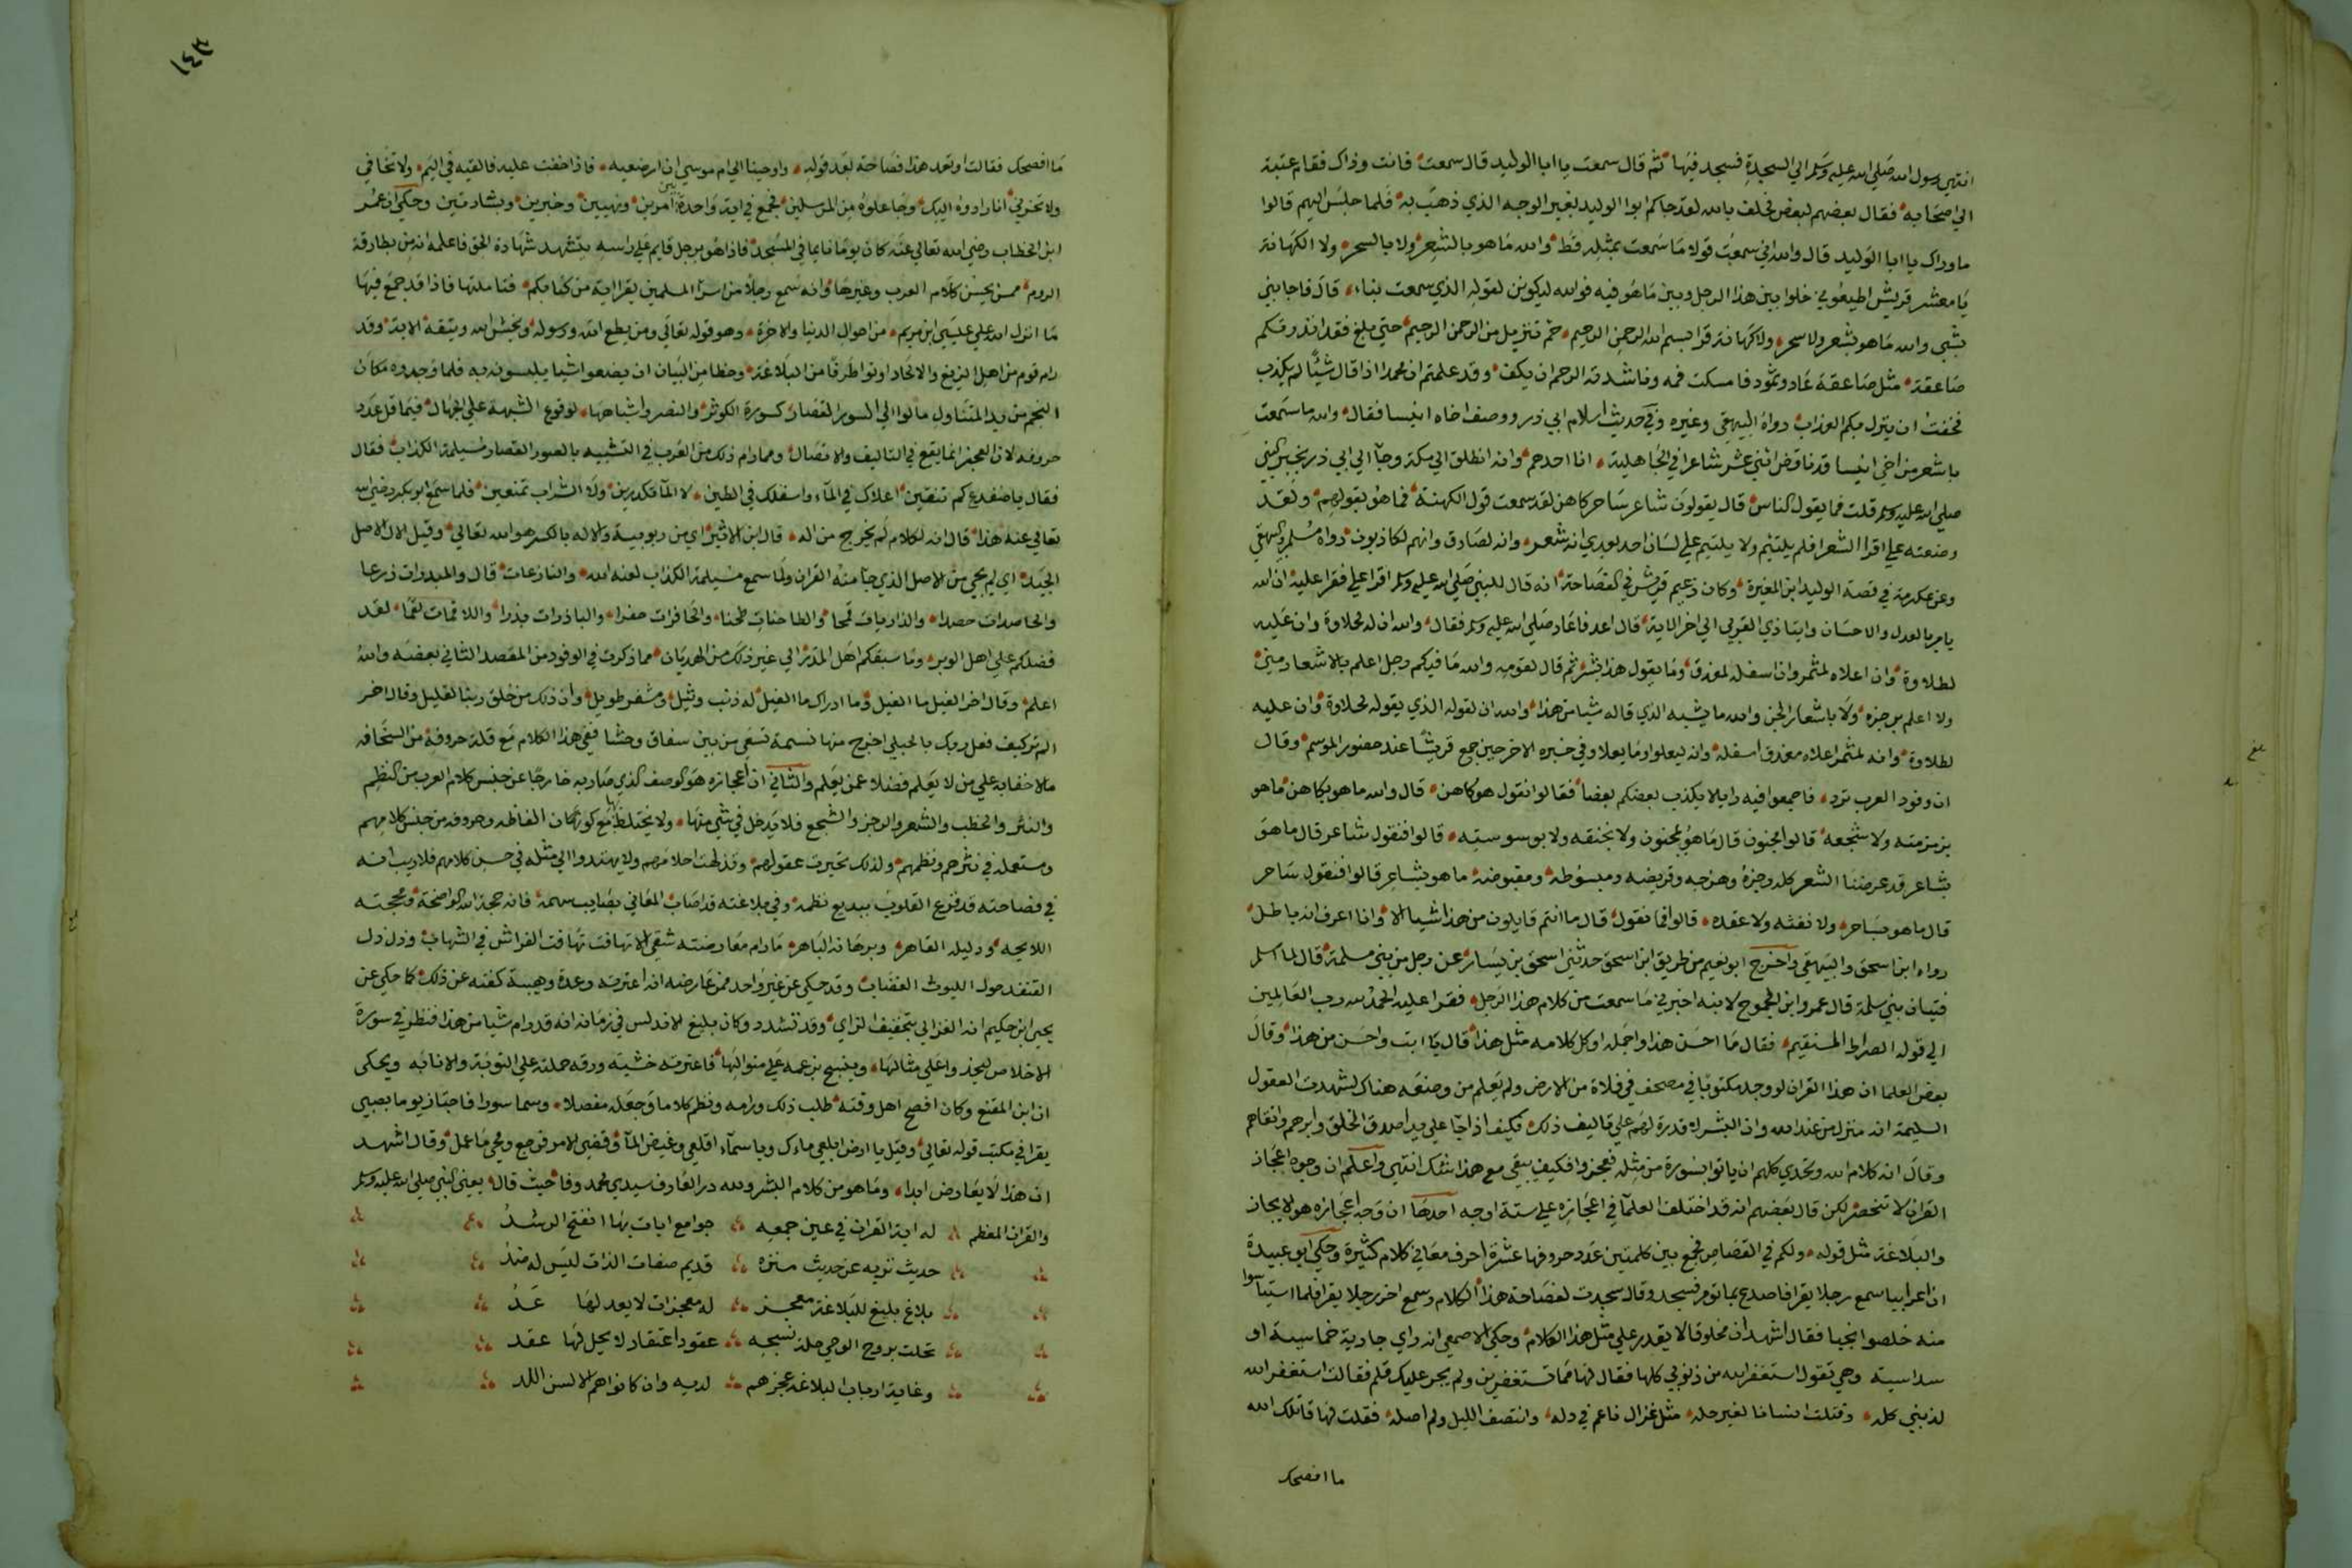 انتهى رسول الله صلى الله عليه وسلم الى السجدة فسجد فيها ثم قال سمعت يا ابا الوليد قال سمعت فانت وذاك فقام عتبة
الى اصحابه فقال بعضهم لبعض نحلف بالله لقد جاكم ابوا الوليد لغير الوجه الذي ذهب به فلما جلس اليهم قالوا
ما وراك يا ابا الوليد قال والله اني سمعت قولا ما سمعت بمثله قط والله ما هو بالشعر ولا بالسحر ولا الكهانة
يا معشر قريش اطيعوني خلوا بين هذا الرجل وبين ما هو فيه فوالله ليكونن لقوله الذي سمعت بناء قال فاجابني
بشي والله ما هو بشعر ولا سحر ولا كهانة قرا بسم الله الرحمن الرحيم حم تنزيل من الرحمن الرحيم حتى بلغ فقد انذرتكم
صاعقة مثل صاعقة عاد وثمود فامسكت فمه وناشدته الرحم ان يكف وقد علمتم ان محمدا اذا قال شيئا لم يكذب
فخفت ان ينزل بكم العذاب رواه البيهقي وغيره وفي حديث اسلام ابي ذر ووصف اخاه انيسا فقال والله ما سمعت
باشعر من اخي انيسا قد ناقض اثني عشر شاعرا في الجاهلية انا احدهم وانه انطلق الى مكة وجآ الى ابي ذر بخبر النبي
صلى الله عليه وسلم قلت فما يقول الناس قال يقولون شاعر ساحر كاهن لقد سمعت قول الكهنة فما هو بقولهم ولقد
وضعته على اقرا الشعر فلم يلتئم ولا يلتيم على لسان احد بعدي انه شعر وانه لصادق وانهم لكاذبون رواه مسلم والبيهقي
وعن عكرمة في قصة الوليد ابن المغيرة وكان زعيم قريش في الفصاحة انه قال للنبي صلى الله عليه وسلم اقرا علي فقرا عليه ان الله
يامر بالعدل والاحسان وايتا ذي القربى الى اخر الاية قال اعد فاعاد صلى الله عليه وسلم فقال والله ان له لحلاوة وان عليه
لطلاوة وان اعلاه لمثمر وان اسفله لمغدق وما يقول هذا بشر ثم قال لقومه والله ما فيكم رجل اعلم بالاشعار مني
ولا اعلم برجزه ولا باشعار الجن والله ما يشبه الذي قاله شيا من هذا والله ان لقوله الذي يقوله لحلاوة وان عليه
لطلاوة وانه لمثمر اعلاه مغدق اسفله وانه ليعلوا وما يعلا وفي خبره الاخر حين جمع قريشا عند حضور الموسم وقال
ان وفود العرب ترد فاجمعوا فيه رايا لا يكذب بعضكم بعضا فقالوا نقول هو كاهن قال والله ما هو بكاهن ما هو
بزمزمته ولا سجعه قالوا مجنون قال ما هو بمجنون ولا بخنقه ولا بوسوسته قالوا فنقول شاعر قال ما هو
بشاعر قد عرفنا الشعر كله رجزه وهزجه وقريضه ومبسوطه ومقبوضه ما هو بشاعر قالوا فنقول ساحر
قال ما هو بساحر ولا نفثه ولا عقده قالوا فما نقول قال ما انتم قايلون من هذا شيا الا وانا اعرف انه باطل
رواه ابن اسحق والبيهقي واخرج ابو نعيم من طريق ابن اسحق حدثني اسحق بن يسار عن رجل من بني سلمة قال لما اسلم
فتيان بني سلمة قال عمرو ابن الجموح لابنه اخبرني ما سمعت من كلام هذا الرجل فقرا عليه الحمد لله رب العالمين
الى قوله الصراط المستقيم فقال ما احسن هذا واجمله اوكل كلامه مثل هذا قال يا ابت واحسن من هذا وقال
بعض العلما ان هذا القران لو وجد مكتوبا في مصحف في فلاة من الارض ولم يعلم من وضعه هناك لشهدت العقول
السليمة انه منزل من عند الله وان البشر لا قدرة لهم على تاليف ذلك فكيف اذا جآ على يد اصدق الخلق وابرهم واتقاهم
وقال انه كلام الله وتحدي كلهم ان ياتوا بسورة من مثله فعجزوا فكيف يبقى مع هذا شك انتهى واعلم ان وجوه اعجاز
القران لا تنحصر لكن قال بعضهم انه قد اختلف العلمآ في اعجازه على ستة اوجه احدها ان وجه اعجازه هو الايجاز
والبلاغة مثل قوله ولكم في القصاص فجمع بين كلمتين عدد حروفها عشرة احرف معاني كلام كثيرة وحكى ابو عبيدة
ان اعرابيا سمع رجلا يقرا فاصدع بما تومر فسجد وقال سجدت لفصاحة هذا الكلام وسمع اخر رجلا يقرا فلما استياسوا
منه خلصوا نجيا فقال اشهد ان مخلوقا لا يقدر على مثل هذا الكلام وحكى الاصمعي انه راي جارية خماسية او
سداسية وهي تقول استغفر الله من ذنوبي كلها فقال لها مما تستغفرين ولم يجر عليك قلم فقالت استغفر الله
لذنبي كله وقتلت انسانا لغير حله مثل غزال ناعم في دله وانتصف الليل ولم اصله فقلت لها قاتلك الله
ما افصحك
١٤٣
ما افصحك فقالت او تعد هذا فصاحة بعد قوله واوحينا الى ام موسى ان ارضعيه فاذا خفت عليه فالقيه في اليم ولا تخافي
ولا تحزني انا رادوه اليك وجاعلوه من المرسلين فجمع في اية واحدة بين امرين ونهيين وخبرين وبشارتين وحكى ان عمر
ابن الخطاب رضي الله تعالى عنه كان يوما نايما في المسجد فاذا هو برجل قايم على راسه يتشهد شهادة الحق فاعلمه انه من بطارقة
الروم ممن يحسن كلام العرب وغيرها وانه سمع رجلا من اسرا المسلمين يقرا اية من كتابكم فتاملتها فاذا قد جمع فيها
ما انزل الله على عيسى ابن مريم من احوال الدنيا والاخرة وهو قوله تعالى ومن يطع الله ورسوله ويخش الله ويتقه الاية وقد
رام قوم من اهل الزيغ والالحاد اوتوا طرفا من البلاغة وحظا من البيان ان يضعوا شيا يلبسون به فلما وجدوه مكان
النجم من يد المتناول مالوا الى السور القصار كسورة الكوثر والنصر واشباهها لوقوع الشبهة على الجهال فيما قل عدد
حروفه لان العجز انما يقع في التاليف والاتصال وممن رام ذلك من العرب في التشبيه بالسور القصار مسيلمة الكذاب فقال
فقال يا ضفدع كم تنقين اعلاك في المآء واسفلك في الطين لا المآ تكدرين ولا الشراب تمنعين فلما سمع ابو بكر رضي الله
تعالى عنه هذا قال انه لكلام لم يخرج من ال قال ابن الاثير اي من ربوبية والال بالكسر هو الله تعالى وقيل الال الاصل
الجيد اي لم يجي من الاصل الذي جآ منه القران ولما سمع مسيلمة الكذاب لعنه الله والنازعات قال والمبذرات زرعا
والحاصدات حصدا والذاريات قمحا والطاحنات طحنا والحافرات حفرا والباذرات بذرا واللاقمات لقما لقد
فضلكم على اهل الوبر وما سبقكم اهل المدر الى غير ذلك من الهذيان مما ذكرت في الوفود من المقصد الثاني بعضه والله
اعلم وقال اخر الفيل ما الفيل وما ادراك ما الفيل له ذنب وثيل ومشفر طويل وان ذلك من خلق ربنا لقليل وقال اخر
الم تر كيف فعل ربك بالحبلى اخرج منها نسمة تسعى من بين سفاق وحشا ففي هذا الكلام مع قلة حروفه من السخافة
ما لا خفا به على من لا يعلم فضلا عمن يعلم والثاني ان اعجازه هو الوصف الذي صار به خارجا عن جنس كلام العرب من النظم
والنثر والخطب والشعر والرجز والسجع فلا يدخل في شي منها ولا يختلط بها مع كون الفاظه وحروفه من جنس كلامهم
ومستعملة في نثرهم ونظمهم ولذلك تحيرت عقولهم وتدلهت احلامهم ولم يهتدوا الى مثله في حسن كلامهم فلا ريب انه
في فصاحته قد قرع القلوب ببديع نظمه وفي بلاغته قد اصاب المعاني بصايب سهمه فانه حجة الله الواضحة ومحجته
اللايحه ودليله القاهر وبرهانه الباهر ما رام معارضته شقي الا تهافت تهافت الفراش في الشهاب وذل ذل
النقد حول الليوث الغضاب وقد حكي عن غير واحد ممن عارضه انه اعترته روعة وهيبة كفته عن ذلك كما حكي عن
يحيى ابن حكيم الغزالي بتخفيف الزاي وقد تشدد وكان بليغ الاندلس في زمانه انه قد رام شيا من هذا فنظر في سورة
الاخلاص ليحذوا على مثالها وينسج بزعمه على منوالها فاعترته خشية ورقة حملته على التوبة والانابه ويحكى
ان ابن المقفع وكان افصح اهل وقته طلب ذلك ورامه ونظم كلاما وجعله مفصلا وسما سورا فاجتاز يوما بصبي
يقرا في مكتب قوله تعالى وقيل يا ارض ابلعي ماءك ويا سمآء اقلعي وغيض المآ وقضي الامر فرجع ومحى ما عمل وقال اشهد
ان هذا لا يعارض ابدا وما هو من كلام البشر ولله در العارف سيدي محمد وفا حيث قال يعني النبي صلى الله عليه وسلم
والقران المعظم له اية القران في عين جمعه جوامع ايات بها اتضح الرشد
حديث نزيه عن حديث منزه قديم صفات الذات ليس له ضد
بلاغ بليغ للبلاغة معجز له معجزات لا يعد لها عد
تحلت بروح الوحي حلة نسجه عقود اعتقاد لا يحل لها عقد
وغاية ارباب البلاغة عجزهم لديه وان كانوا هم الالسن اللد